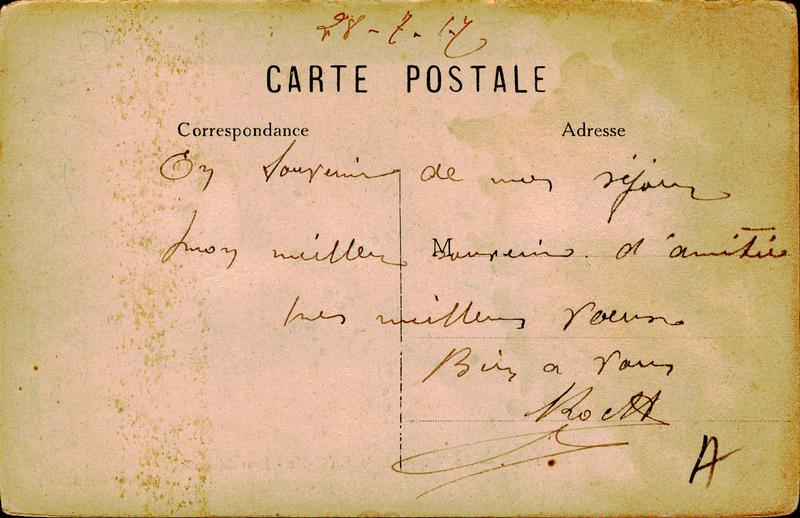 28-7-17
CARTE POSTALE
Correspondance
Adresse
En Souvenir de mes séjour
mon meilleur souvenir d'amitié
M
mes meilleurs voeux
Bien a vous
A